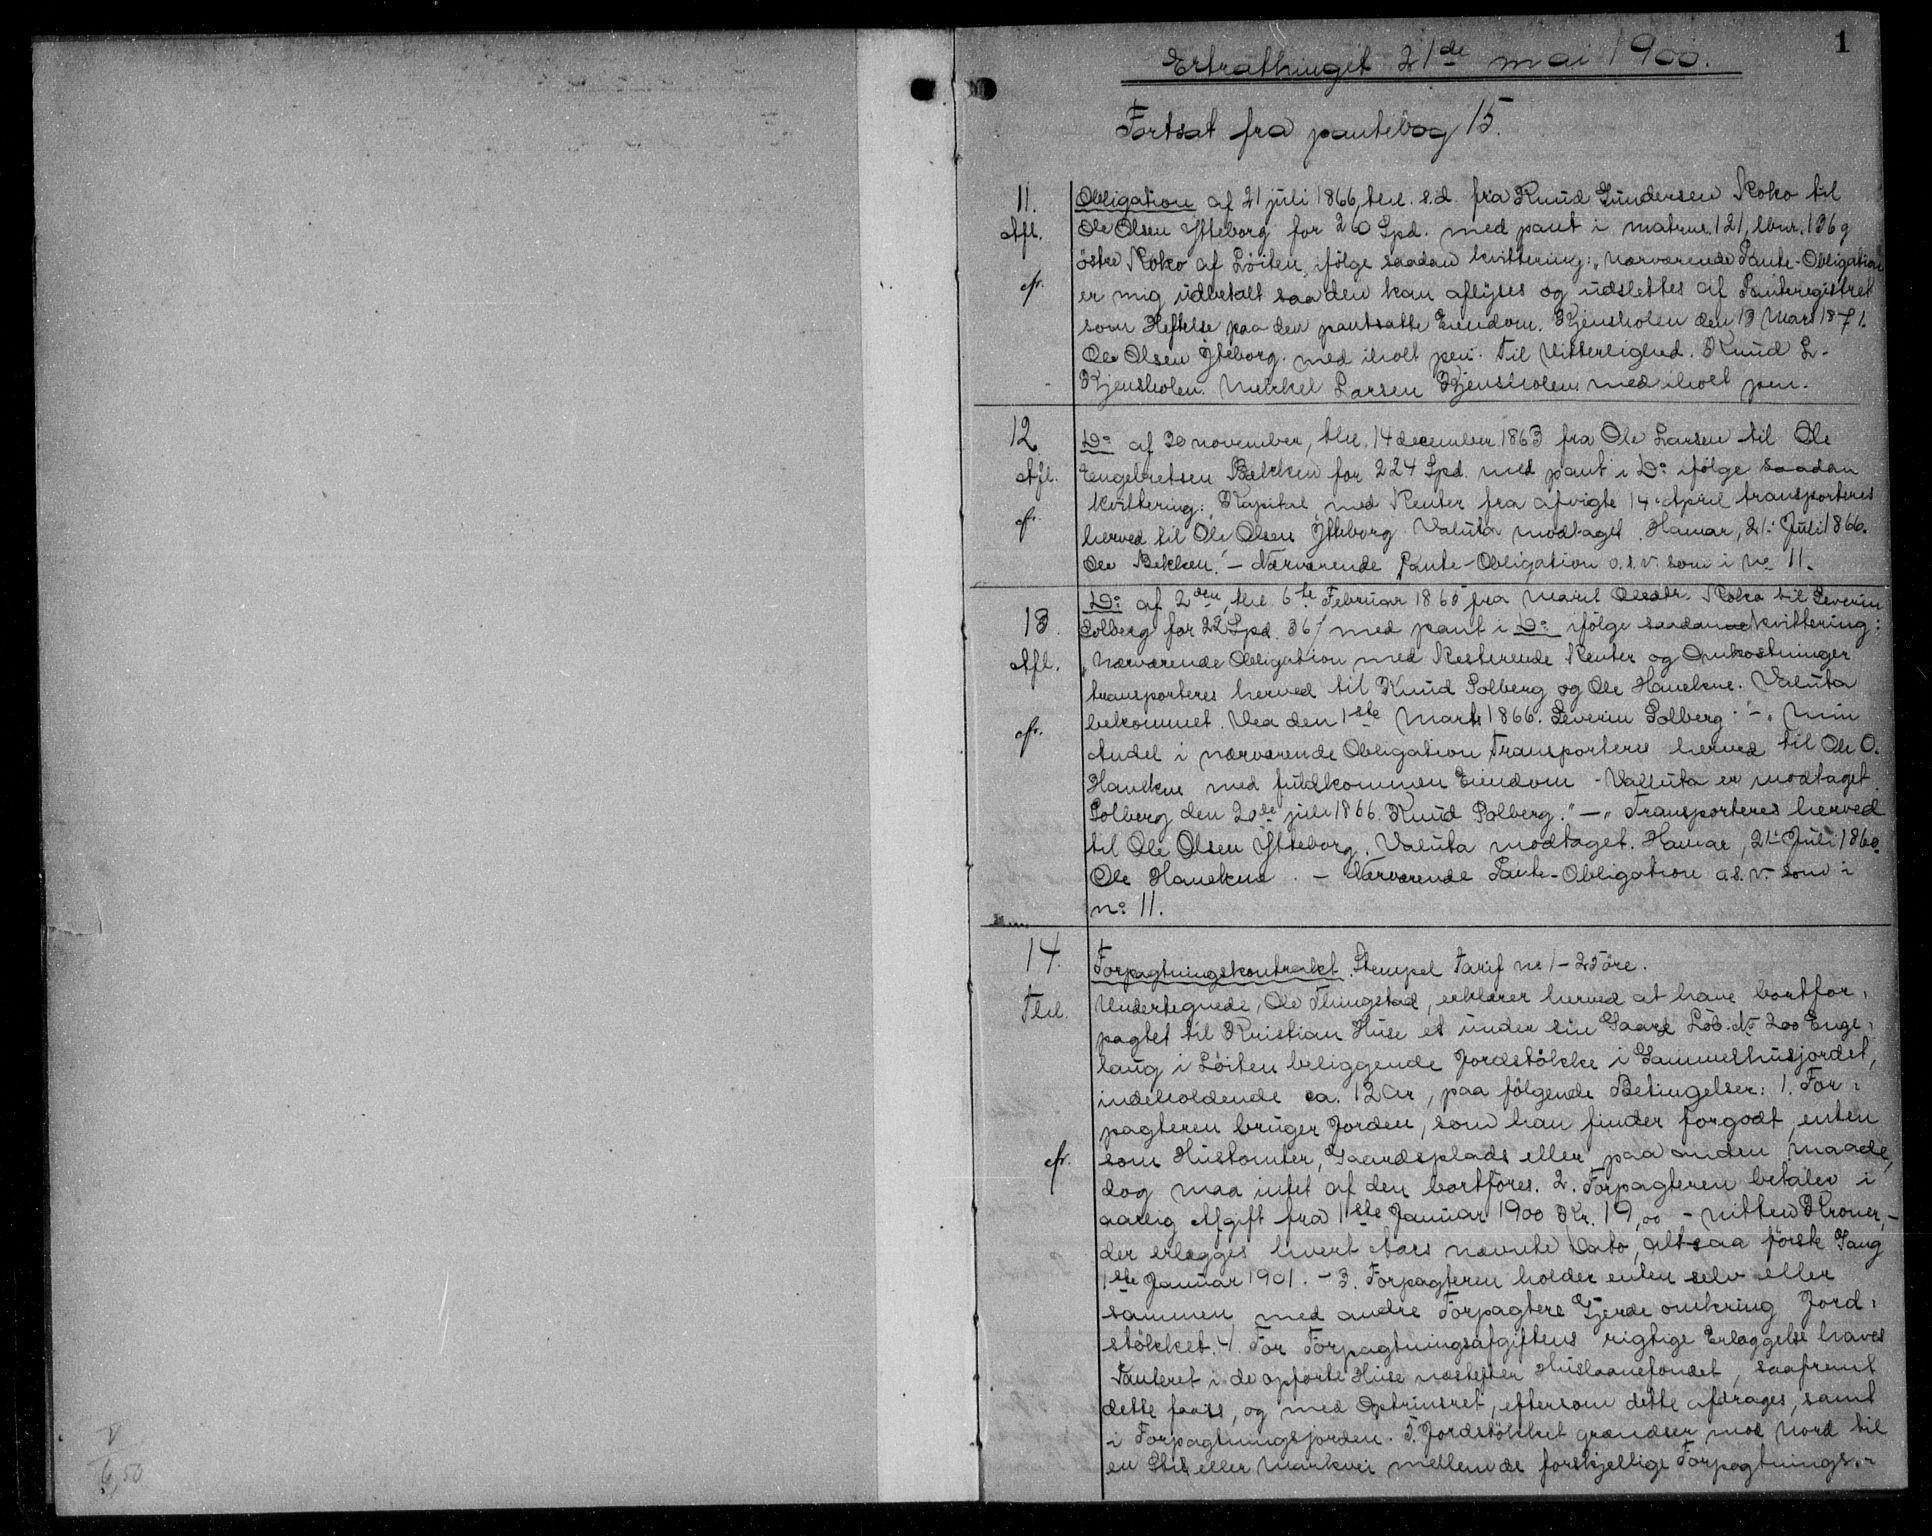 1
Extrathinget 21de mai 1900.
Fortsat fra pantebog 15.
11. Obligation af 21 juli 1866, thl. s.d. fra Knud Gundersen Koko til
Afl. Ole Olsen Ytteborg for 260 Spd. med pant i matrnr. 121, lbnr. 136g
østre Koko af Løiten, ifølge saadan kvittering: „Nærværende Pante-Obligation
cfr. er mig udbetalt saa den kan aflyses og udslettes af Panteregistret
som Heftelse paa den pantsatte Eiendom. Kjensholen den 13 Mars 1871.
Ole Olsen Ytteborg. med iholt pen. Til Vitterlighed. Knud L.
Kjensholen. Mekkel Larsen Kjensholen med iholt pen.
12 Do af 30 november, thl. 14 december 1863 fra Ole Larsen til Ole
Afl. Engebretsen Bækken for 224 Spd. med pant i Do ifølge saadan
kvittering: „Kapital med Renter fra afvigte 14. April transporteres
cfr. herved til Ole Olsen Ytteborg. Valuta modtaget. Hamar, 21. Juli 1866.
Ole Bekken." – Nærværende Pante-Obligation o.s.v. som i No 11.
Do af 2den, thl. 6te Februar 1865 fra Marit Olesdtr. Koko til Severin
13. Solberg for 22 Spd. 36 med pant i Do ifølge saadan kvittering:
Afl. „Nærværende Obligation med Resterende Renter og Omkostninger
transporteres herved til Knud Solberg og Ole Hanekne. Valuta
cfr. bekommet. Vea den 1ste Marts 1866. Severin Solberg." – „Min
Andel i nærværende Obligation Transporteres herved til Ole O.
Hanekne med fuldkommen Eiendom – Valluta er modtaget.
Solberg den 20de juli 1866. Knud Solberg." – „Transporteres herved
til Ole Olsen Ytteborg. Valuta modtaget. Hamar, 21. Juli 1866.
Ole Hanekne. – Nærværende Pante-Obligation o.s.v. som i
no 11.
14. Forpagtningskontrakt. Stempel Tarif no 1 – 25 øre.
Thl. Undertegnede, Ole Thingstad, erklærer herved at have bortfor-
pagtet til Kristian Huse et under sin Gaard Løb. No 200 Enge-
laug i Løiten beliggende Jordstökke i Gammelhusjordet,
indeholdende ca. 12 Ar, paa følgende Betingelser: 1. For-
pagteren bruger Jorden, som han finder for godt, enten
cfr. som Hustomter, Gaardsplads eller paa anden Maade,
dog maa intet af den bortføres. 2. Forpagteren betaler i
aarlig Afgift fra 1ste Januar 1900 Kr. 19,00 – nitten Kroner, –
der erlægges hvert Aars nævnte Dato, altsaa første Gang
1ste Januar 1901. – 3. Forpagteren holder enten selv eller
sammen med andre Forpagtere Gjerde omkring Jord-
stökket. 4. For Forpagtningsafgiftens rigtige Erlæggelse haves
Panteret i de opførte Huse næstefter Huslaanefondet, saafremt
dette faaes, og med Optrinsret, eftersom dette afdrages, samt
i Forpagtningsjorden. 5. Jordstökket grændser mod Nord til
en Sti eller Markvei mellem de forskjellige Forpagtnings-
6,50